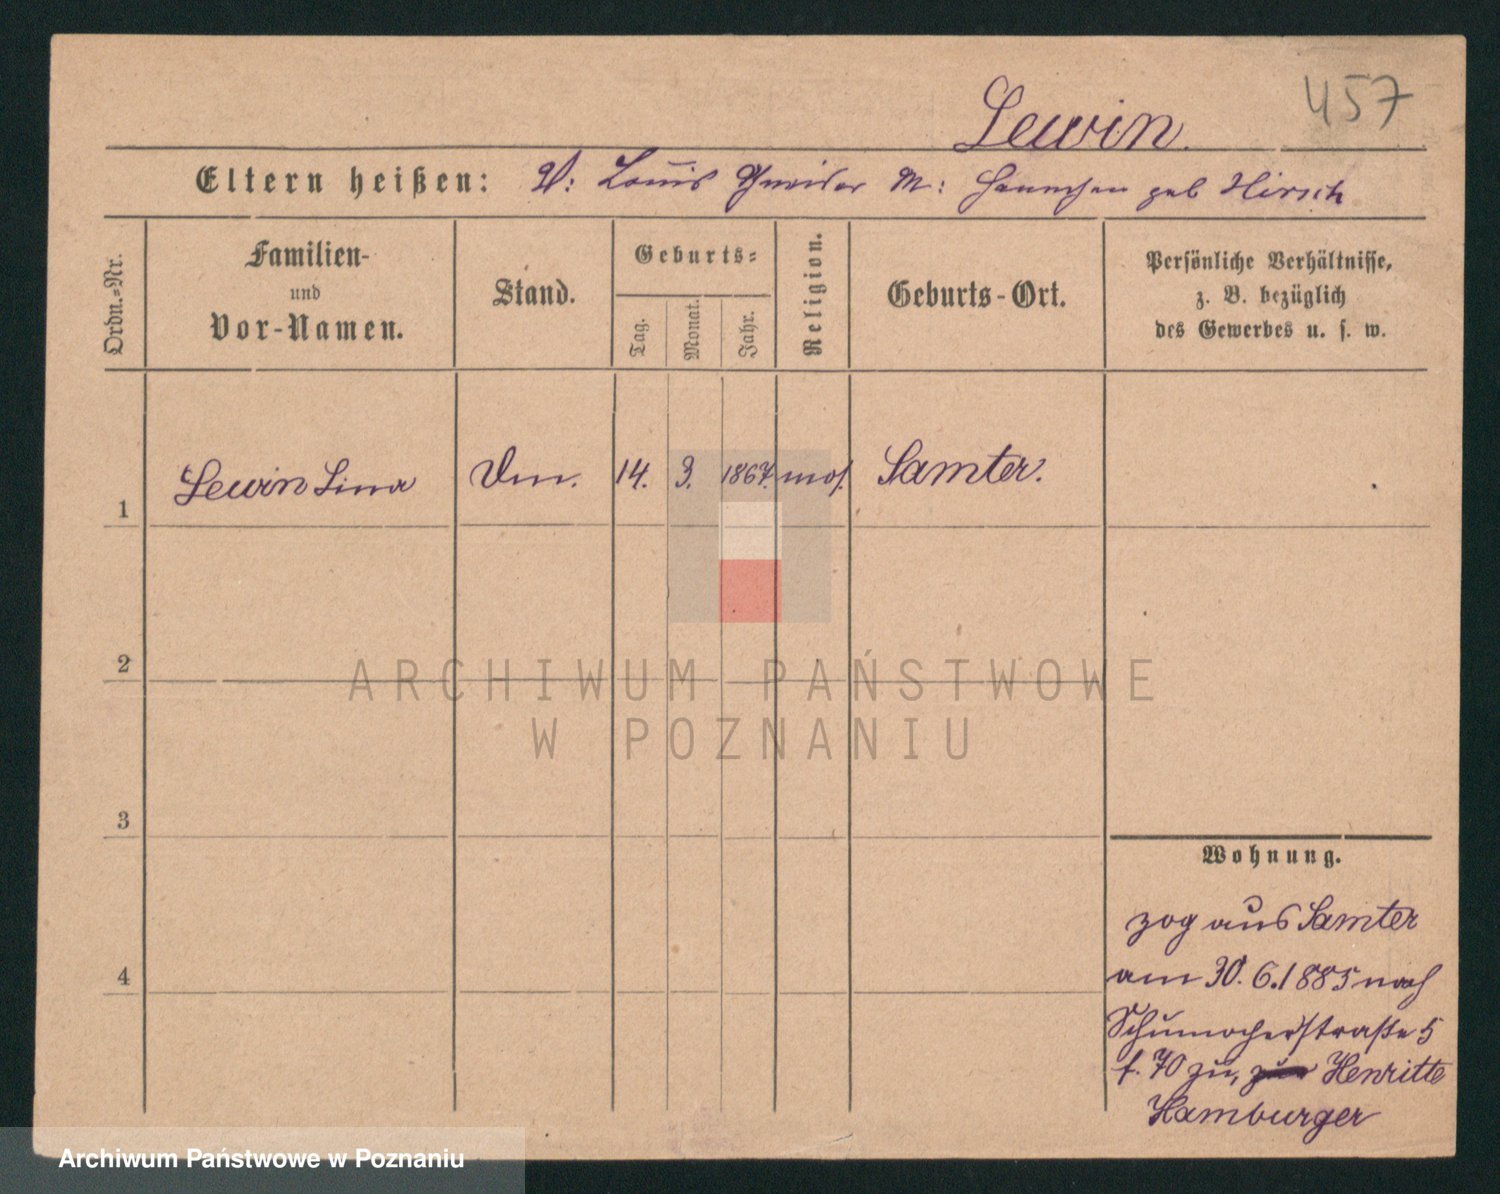 457
Lewin.
Eltern heißen: V: Louis Schneider M: Hannchen geb Hirsch
Ordn.=Nr.
Familien-
und
Vor-Namen.
Stand.
Geburts=
Tag.
Monat.
Jahr.
Religion.
Geburts-Ort.
Persönliche Verhältnisse,
z. B. bezüglich
des Gewerbes u. s. w.
1 Lewin Lina 14. 3. 1867. mos. Samter.
2
3
4
Wohnung.
zog aus Samter
am 30.6.1885 nach
Schumacherstraße 5
f. 70 zu, Henritte
Hamburger
ARCHIWUM PAŃSTWOWE
W POZNANIU
Archiwum Państwowe w Poznaniu